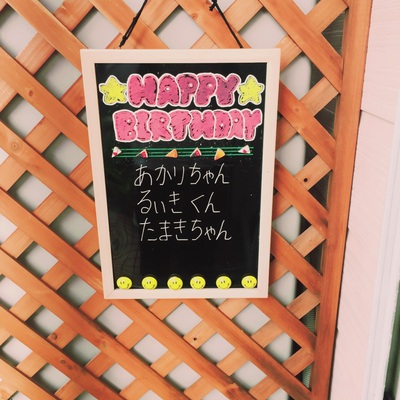 HAPPY
BIRTHDAY
あかりちゃん
るいき くん
たまきちゃん